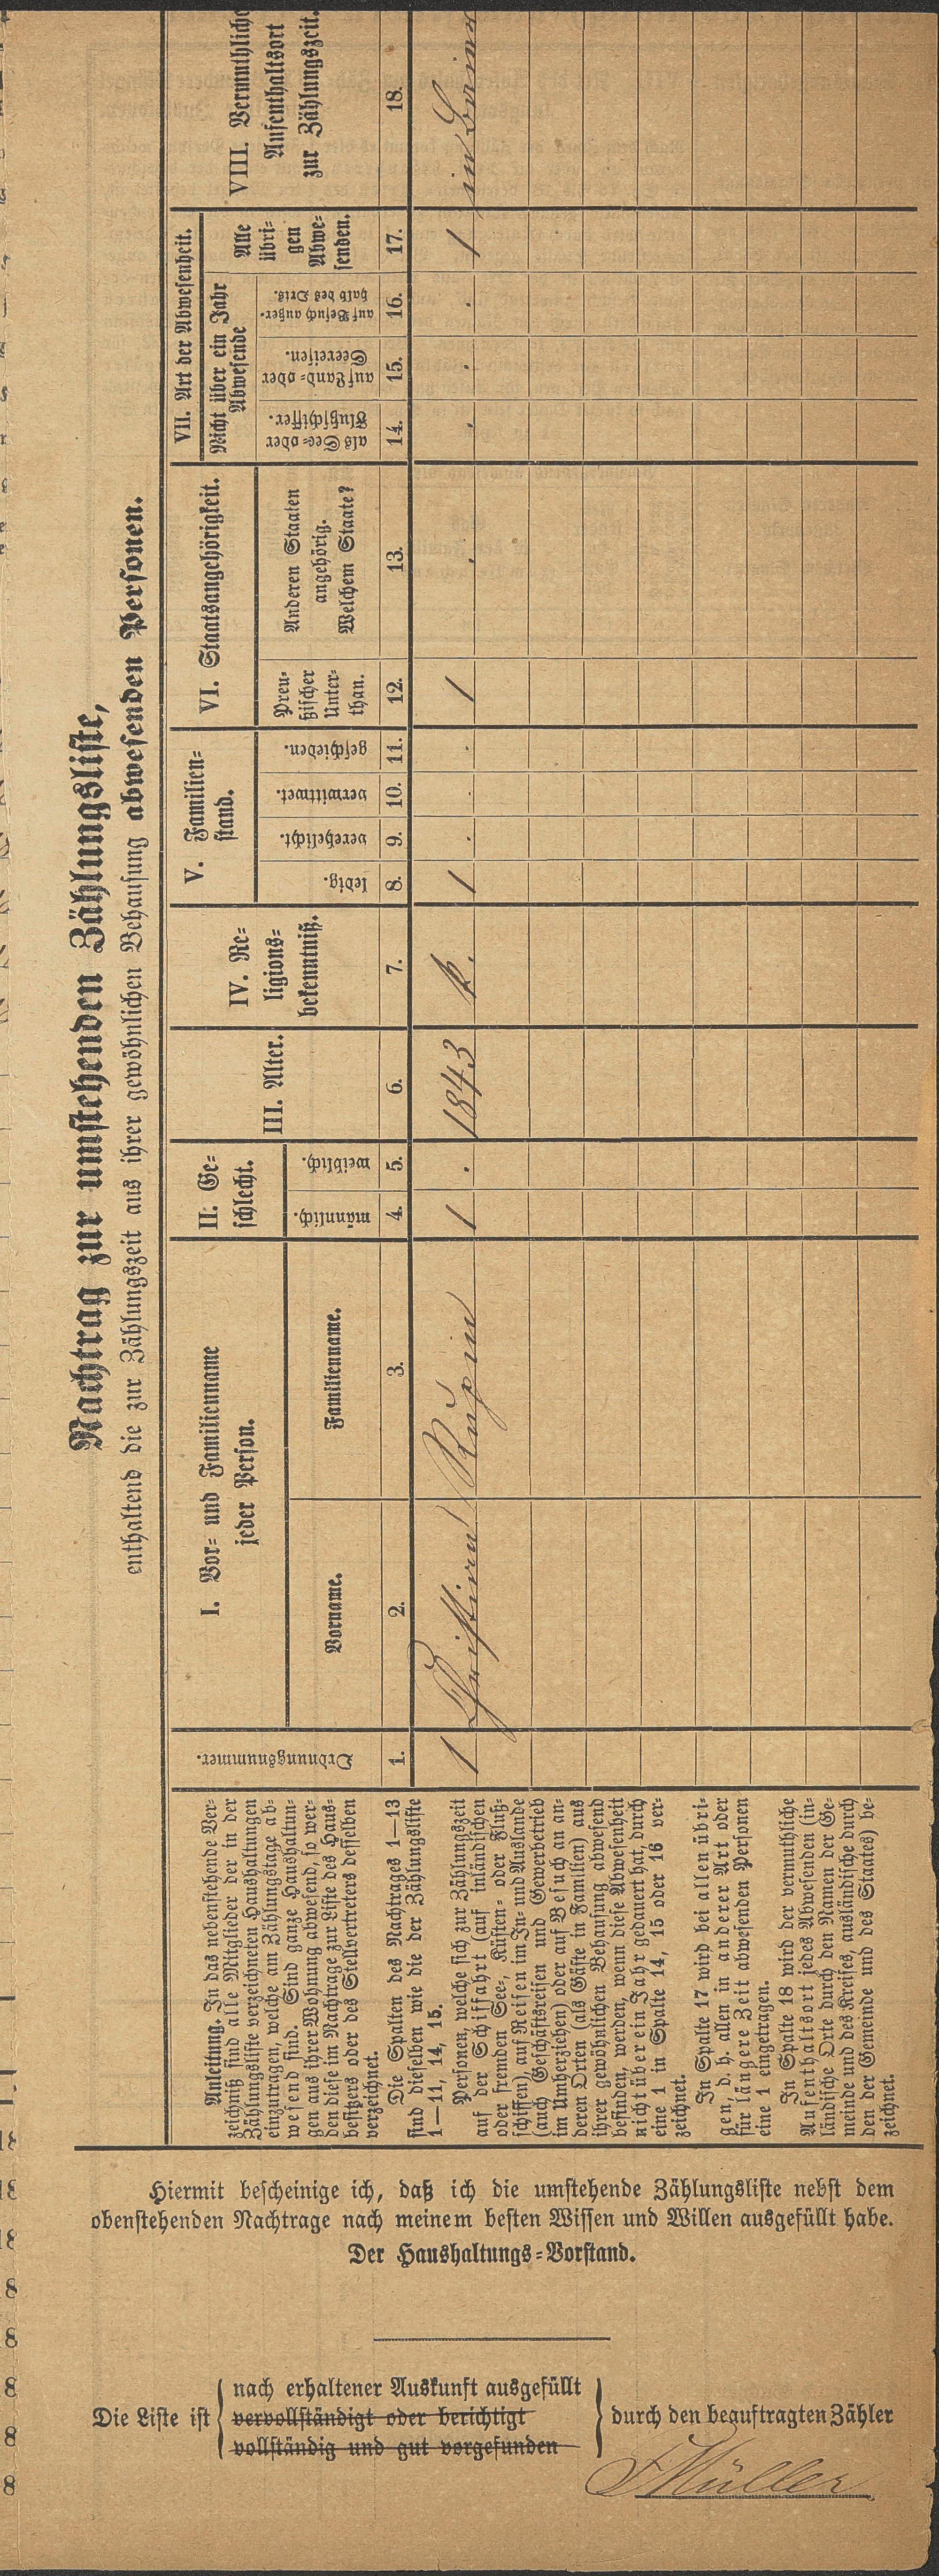 Nachtrag zur umstehenden Zählungsliste,
enthaltend die zur Zählungszeit aus ihrer gewöhnlichen Behausung abwesenden Personen.
Anleitung. In das nebenstehende Ver-
zeichniß sind alle Mitglieder der in der
Zählungsliste verzeichneten Haushaltungen
einzutragen, welche am Zählungstage ab-
wesend sind. Sind ganze Haushaltun-
gen aus ihrer Wohnung abwesend, so wer-
den diese im Nachtrage zur Liste des Haus-
besitzers oder des Stellvertreters desselben
verzeichnet.
Die Spalten des Nachtrages 1—13
sind dieselben wie die der Zählungsliste
1—11, 14, 15.
Personen, welche sich zur Zählungszeit
auf der Schiffahrt (auf inländischen
oder fremden See-, Küsten- oder Fluß-
schiffen), auf Reisen im In- und Auslande
(auch Geschäftsreisen und Gewerbetrieb
im Umherziehen) oder auf Besuch an an-
deren Orten (als Gäste in Familien) aus
ihrer gewöhnlichen Behausung abwesend
befinden, werden, wenn diese Abwesenheit
nicht über ein Jahr gedauert hat, durch
eine 1 in Spalte 14, 15 oder 16 ver-
zeichnet.
In Spalte 17 wird bei allen übri-
gen, d. h. allen in anderer Art oder
für längere Zeit abwesenden Personen
eine 1 eingetragen.
In Spalte 18 wird der vermuthliche
Aufenthaltsort jedes Abwesenden (in-
ländische Orte durch den Namen der Ge-
meinde und des Kreises, ausländische durch
den der Gemeinde und des Staates) be-
zeichnet.
Ordnungsnummer.
I. Vor- und Familienname
jeder Person.
Vorname.
Familienname.
II. Ge-
schlecht.
männlich.
weiblich.
III. Alter.
IV. Re-
ligions-
bekenntniß.
V. Familien-
stand.
ledig.
verehelicht.
verwittwet.
geschieden.
VI. Staatsangehörigkeit.
Preu-
ßischer
Unter-
than.
Anderen Staaten
angehörig.
Welchem Staate?
VII. Art der Abwesenheit.
Nicht über ein Jahr
Abwesende
als See- oder
Flußschiffer.
auf Land- oder
Seereisen.
auf Besuch außer-
halb des Orts.
Alle
übri-
gen
Abwe-
senden.
VIII. Vermuthlicher
Aufenthaltsort
zur Zählungszeit.
1. 2. 3. 4. 5. 6. 7. 8. 9. 10. 11. 12. 13. 14. 15. 16. 17. 18.
1 1 . 1843 k. 1 . . . 1 . . . . 1 in
Hiermit bescheinige ich, daß ich die umstehende Zählungsliste nebst dem
obenstehenden Nachtrage nach meinem besten Wissen und Willen ausgefüllt habe.
Der Haushaltungs-Vorstand.
Die Liste ist
nach erhaltener Auskunft ausgefüllt
vervollständigt oder berichtigt
vollständig und gut vorgefunden
durch den beauftragten Zähler
F Müller